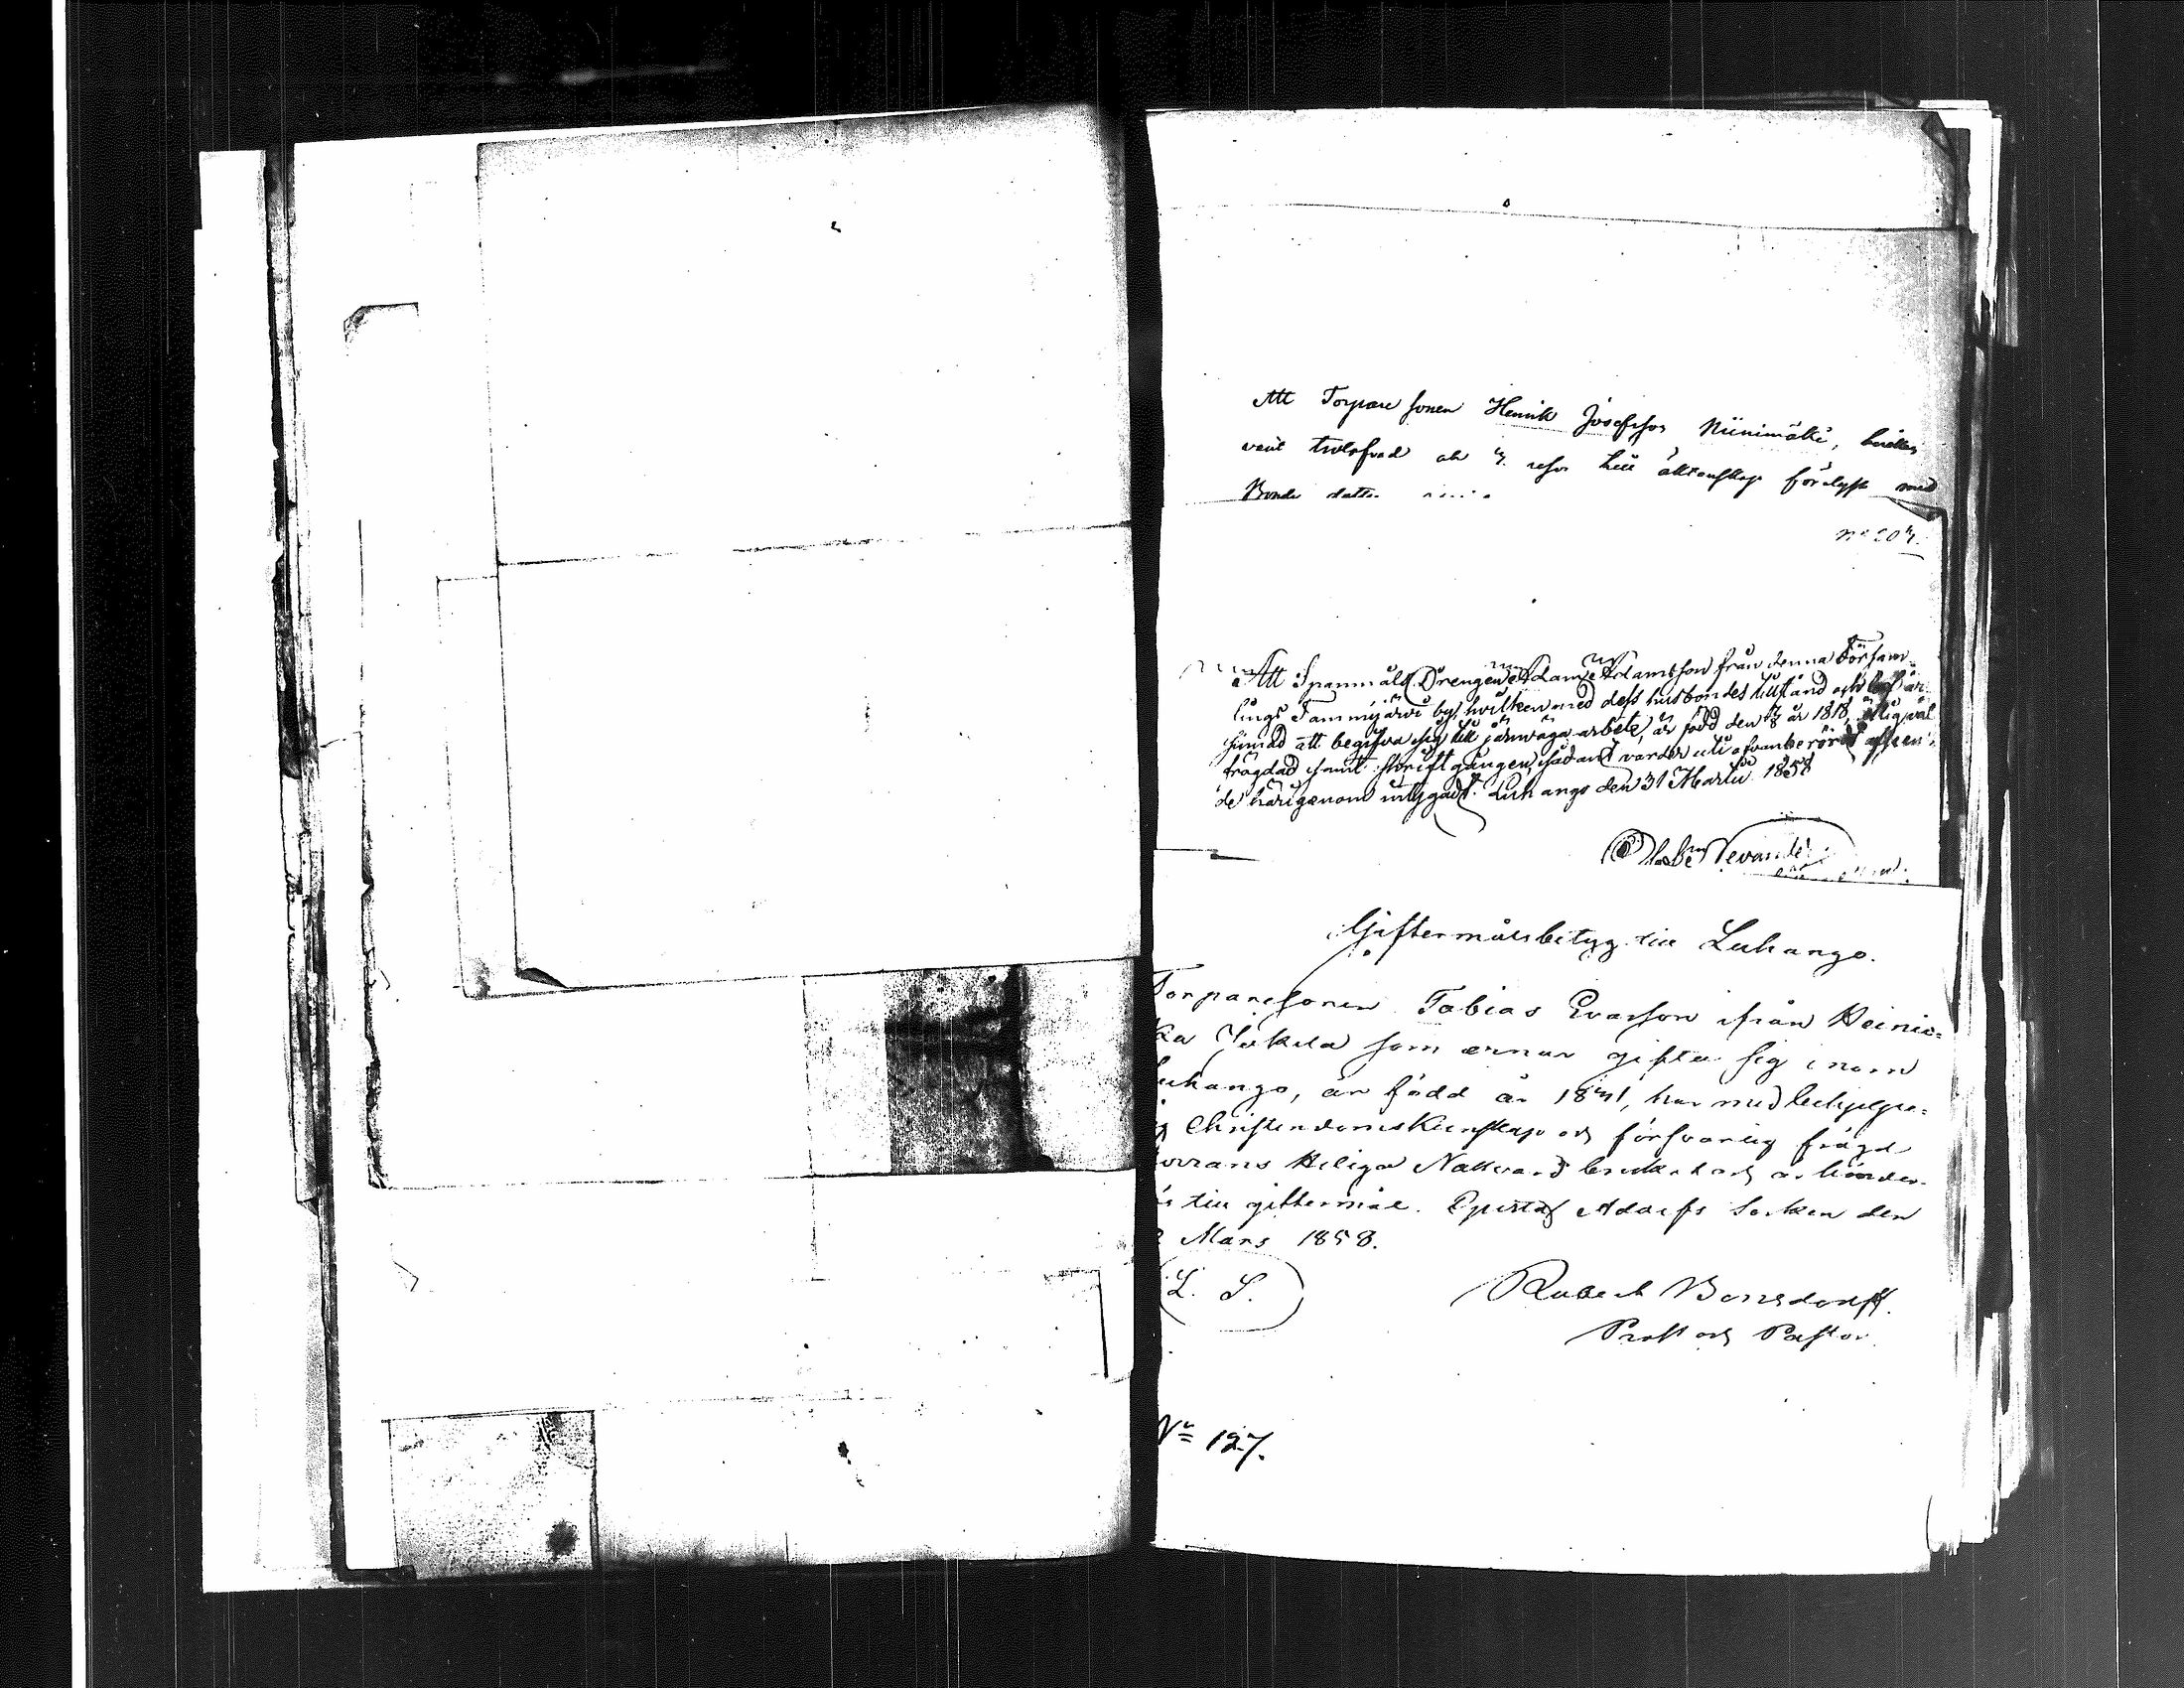 Att Torpare sonen Henrik Josefsson Niinimäki, hvilken
varit trolofvad och 3. resor till äktenskap förelyst med
Bonde dottn
No 204.
Att Spanmåls Drengen Adam Adamsson från denna Försam-
lings Tammijärvi by, hvilken med dess husbondes tillstånd och är
sinnad att begifva sig till järnväga arbete, är född den 18 år 1818, välf
frägdad samt skriftgången, sådant varder uti ofvanberörde afseen-
de härigenom intygadt. Luhango den 31 Martii 1858
Nevander
Giftermålsbetyg till Luhango.
Torparesonen Tobias Evasson ifrån Heinis-
ka Jukila som ernar gifta sig inom
Luhango, är född år 1831, har med behjelpe-
g Christendomskunskap och försvarlig frägd
errans Heliga Nattvard brukat och är hinder-
ös till giftermål. Gustaf Adolfs Socken den
Mars 1858.
L. S.
Robert Bonsdorff.
Prost och Pastor.
No 127.